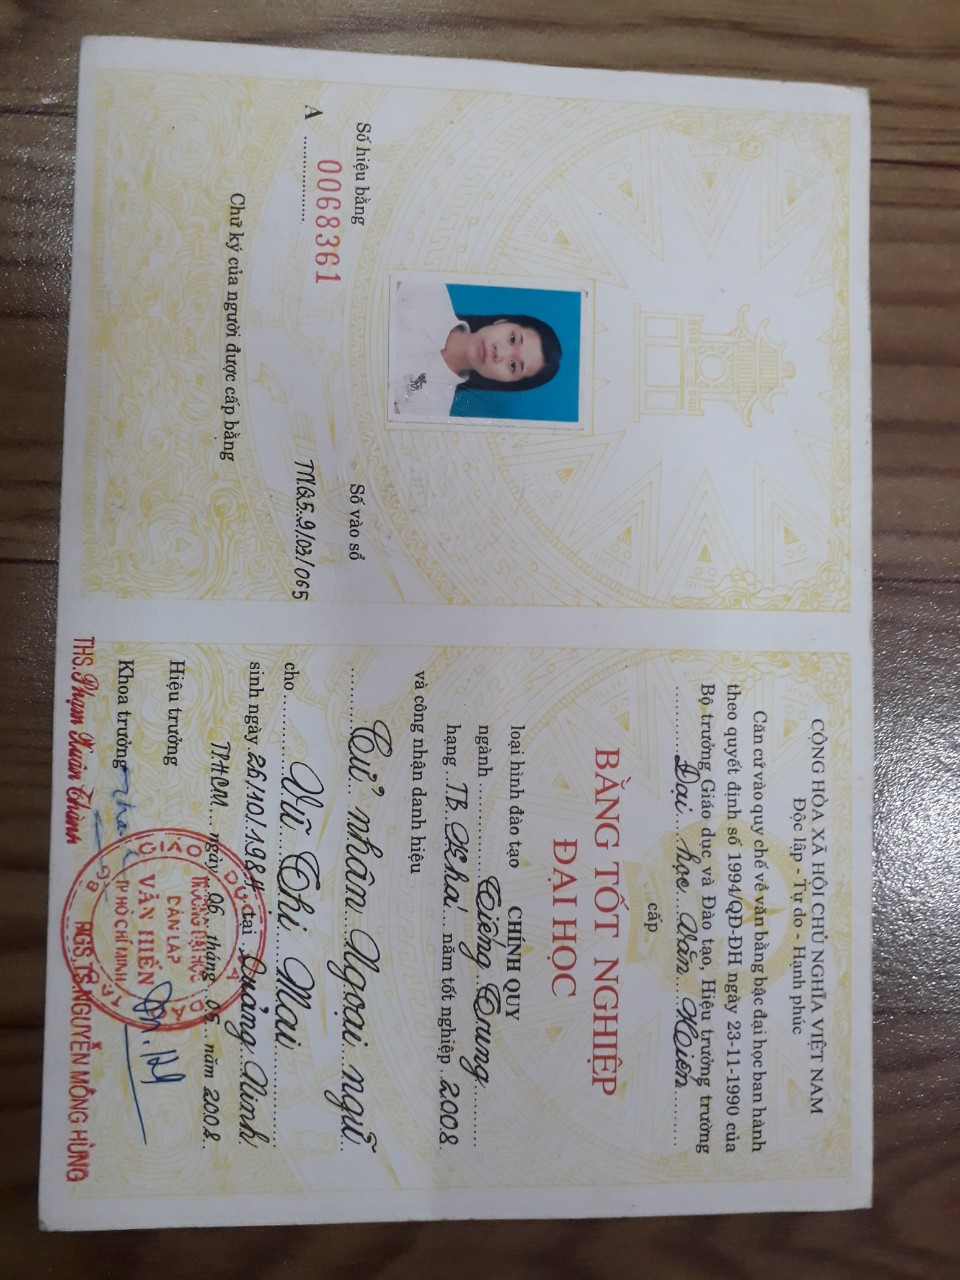 Số hiệu bằng
A 0068361
Số vào sổ
MQ5.9/03/065
Chữ ký của người được cấp bằng
CỘNG HÒA XÃ HỘI CHỦ NGHĨA VIỆT NAM
Độc lập - Tự do - Hạnh phúc
Căn cứ vào quy chế về văn bằng bậc đại học ban hành
theo quyết định số 1994/QĐ-ĐH ngày 23-11-1990 của
Bộ trưởng Giáo dục và Đào tạo, Hiệu trưởng trường
Đại học Văn Hiến
cấp
BẰNG TỐT NGHIỆP
ĐẠI HỌC
loại hình đào tạo CHÍNH QUY
ngành Tiếng Trung
hạng TB Khá năm tốt nghiệp 2008
và công nhận danh hiệu
Cử nhân Ngoại ngữ
cho Vũ Thị Mai
sinh ngày 26/10/1984 tại Quảng Ninh
TP.HCM ngày 06 tháng 05 năm 2008
Hiệu trưởng
Khoa trưởng
TRƯỜNG ĐẠI HỌC
DÂN LẬP
VĂN HIẾN
TP HỒ CHÍ MINH
THS. Phạm Xuân Thành
PGS.TS. NGUYỄN MỘNG HÙNG